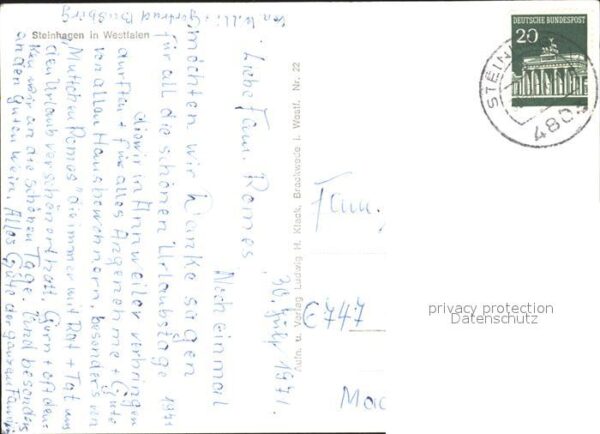 Steinhagen in Westfalen
DEUTSCHE BUNDESPOST
20
STEIN
480
30. July 1971.
Liebe Fam. Romes!
Nocheinmal
möchten wir Danke sagen
für all die schönen Urlaubstage 1971
die wir in Annweiler verbringen
durften + für alles Angenehme + Gute
von allen Hausbewohnern besonders von
"Muttchen Romes" die immer mit Rat + Tat uns
den Urlaub verschönert hatt. Gern + oft den=
ken wir an die schönen Tage. Und besonders
an den guten Wein. Alles Gute der ganzen Familie
von Willi + Gertrud
Aufn. u. Verlag Ludwig H. Klack, Brackwede i. Westf. Nr. 22
Fam.
E747
Mad
privacy protection
Datenschutz